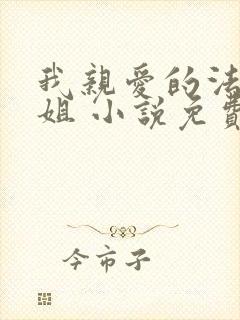 我親愛的法
姐 小說免費
今市子